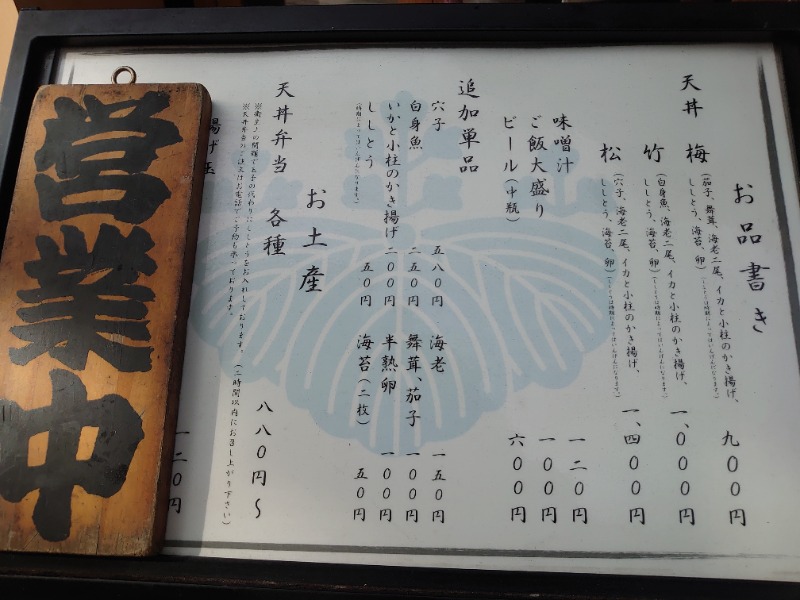 お品書き
天丼
梅(茄子、舞茸、海老二尾、イカと小柱のかき揚げ、ししとう、海苔、卵) 九〇〇円
竹(白身魚、海老二尾、イカと小柱のかき揚げ、ししとう、海苔、卵) 一、〇〇〇円
松(穴子、海老二尾、イカと小柱のかき揚げ、ししとう、海苔、卵) 一、四〇〇円
味噌汁 一二〇円
ご飯大盛り 一〇〇円
ビール(中瓶) 六〇〇円
追加単品
穴子 五八〇円 海老 一五〇円
白身魚 二五〇円 舞茸、茄子 一〇〇円
いかと小柱のかき揚げ 二〇〇円 半熟卵 一〇〇円
ししとう 五〇円 海苔(二枚) 五〇円
お土産
天丼弁当 各種 八八〇円〜
(二時間以内にお召し上がり下さい)
揚げ玉 一二〇円
営業中